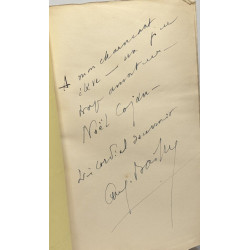 A mon charmant
élève - un peu
trop amateur -
Noël Cojan -
Très cordial souvenir